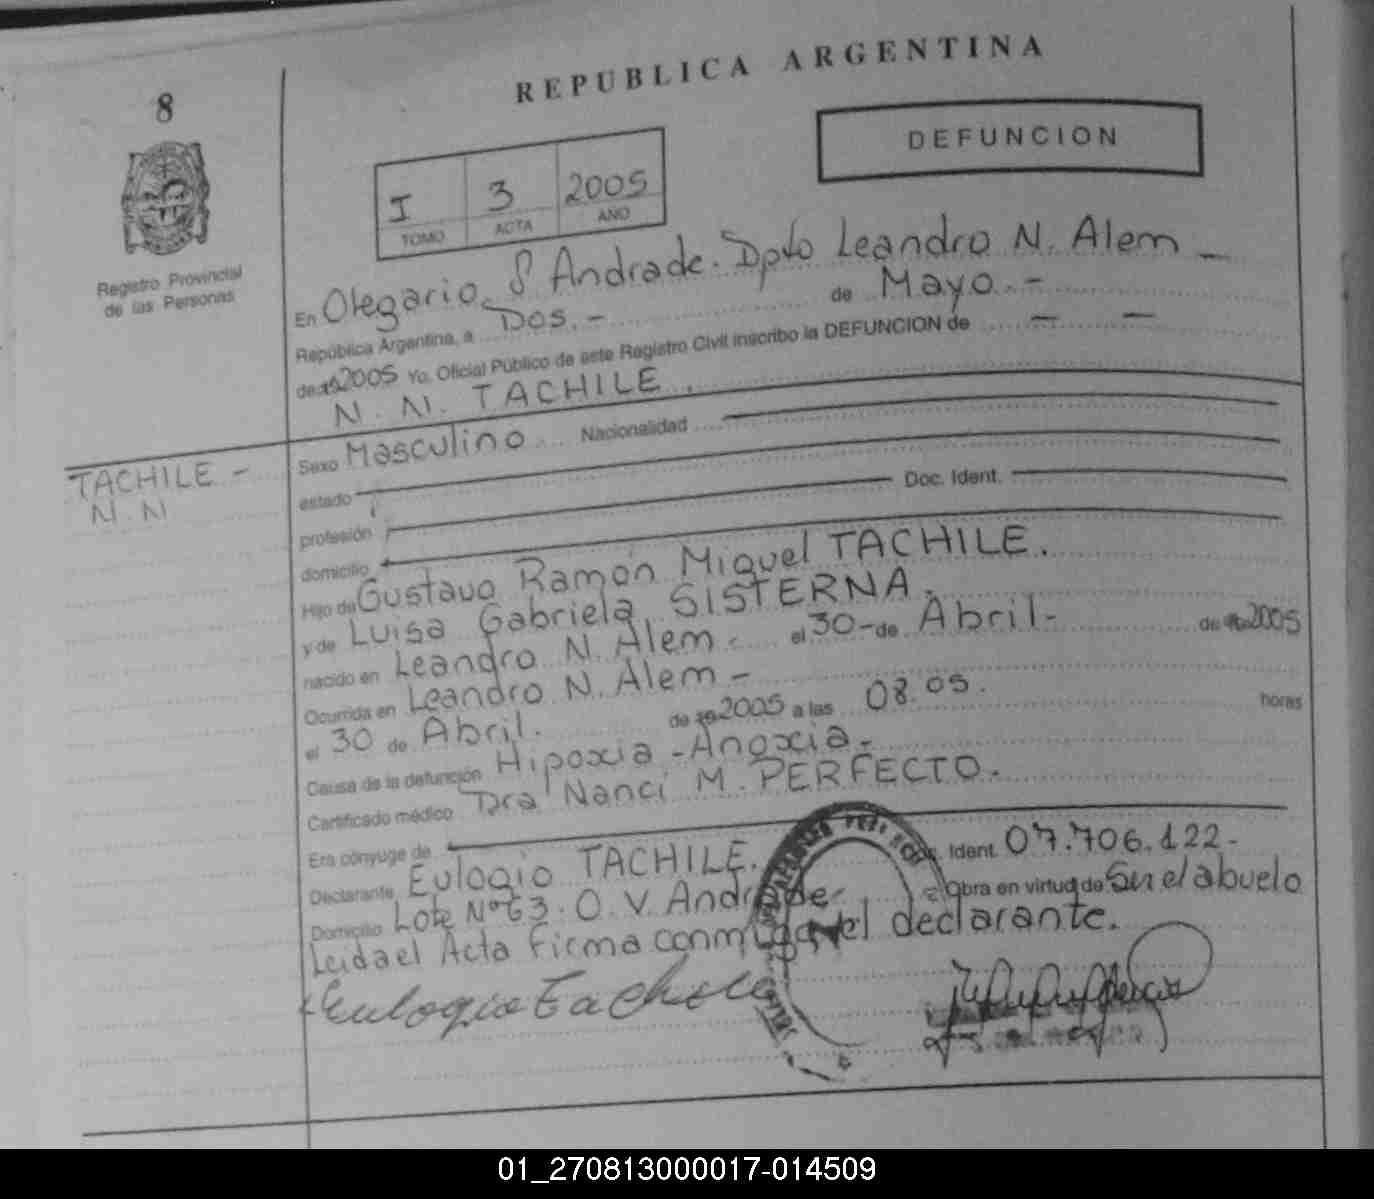 REPUBLICA ARGENTINA
8
DEFUNCION
I 3 2005
TOMO ACTA AÑO
Registro Provincial
de las Personas
En Olegario V. Andrade. Dpto Leandro N. Alem -
República Argentina, a Dos. - de Mayo. -
de 2005 Yo, Oficial Público de este Registro Civil inscribo la DEFUNCION de — —
N. N. TACHILE.
TACHILE -
N. N
Sexo Masculino Nacionalidad
estado
profesión Doc. Ident.
domicilio
Hijo de Gustavo Ramón Miguel TACHILE.
y de Luisa Gabriela SISTERNA.
nacido en Leandro N. Alem. el 30 - de Abril - de 2005
Ocurrida en Leandro N. Alem -
el 30 de Abril. de 2005 a las 08.05. horas
Causa de la defunción Hipoxia - Anoxia -
Certificado médico Dra Nanci M. PERFECTO.
Era cónyuge de
Declarante Eulogio TACHILE. Doc. Ident. 07.706.122 -
Domicilio Lote Nº 63. O. V. Andrade - Obra en virtud de Sn el abuelo
Leida el Acta firma conmigo el declarante.
Eulogio Tachile
01_270813000017-014509